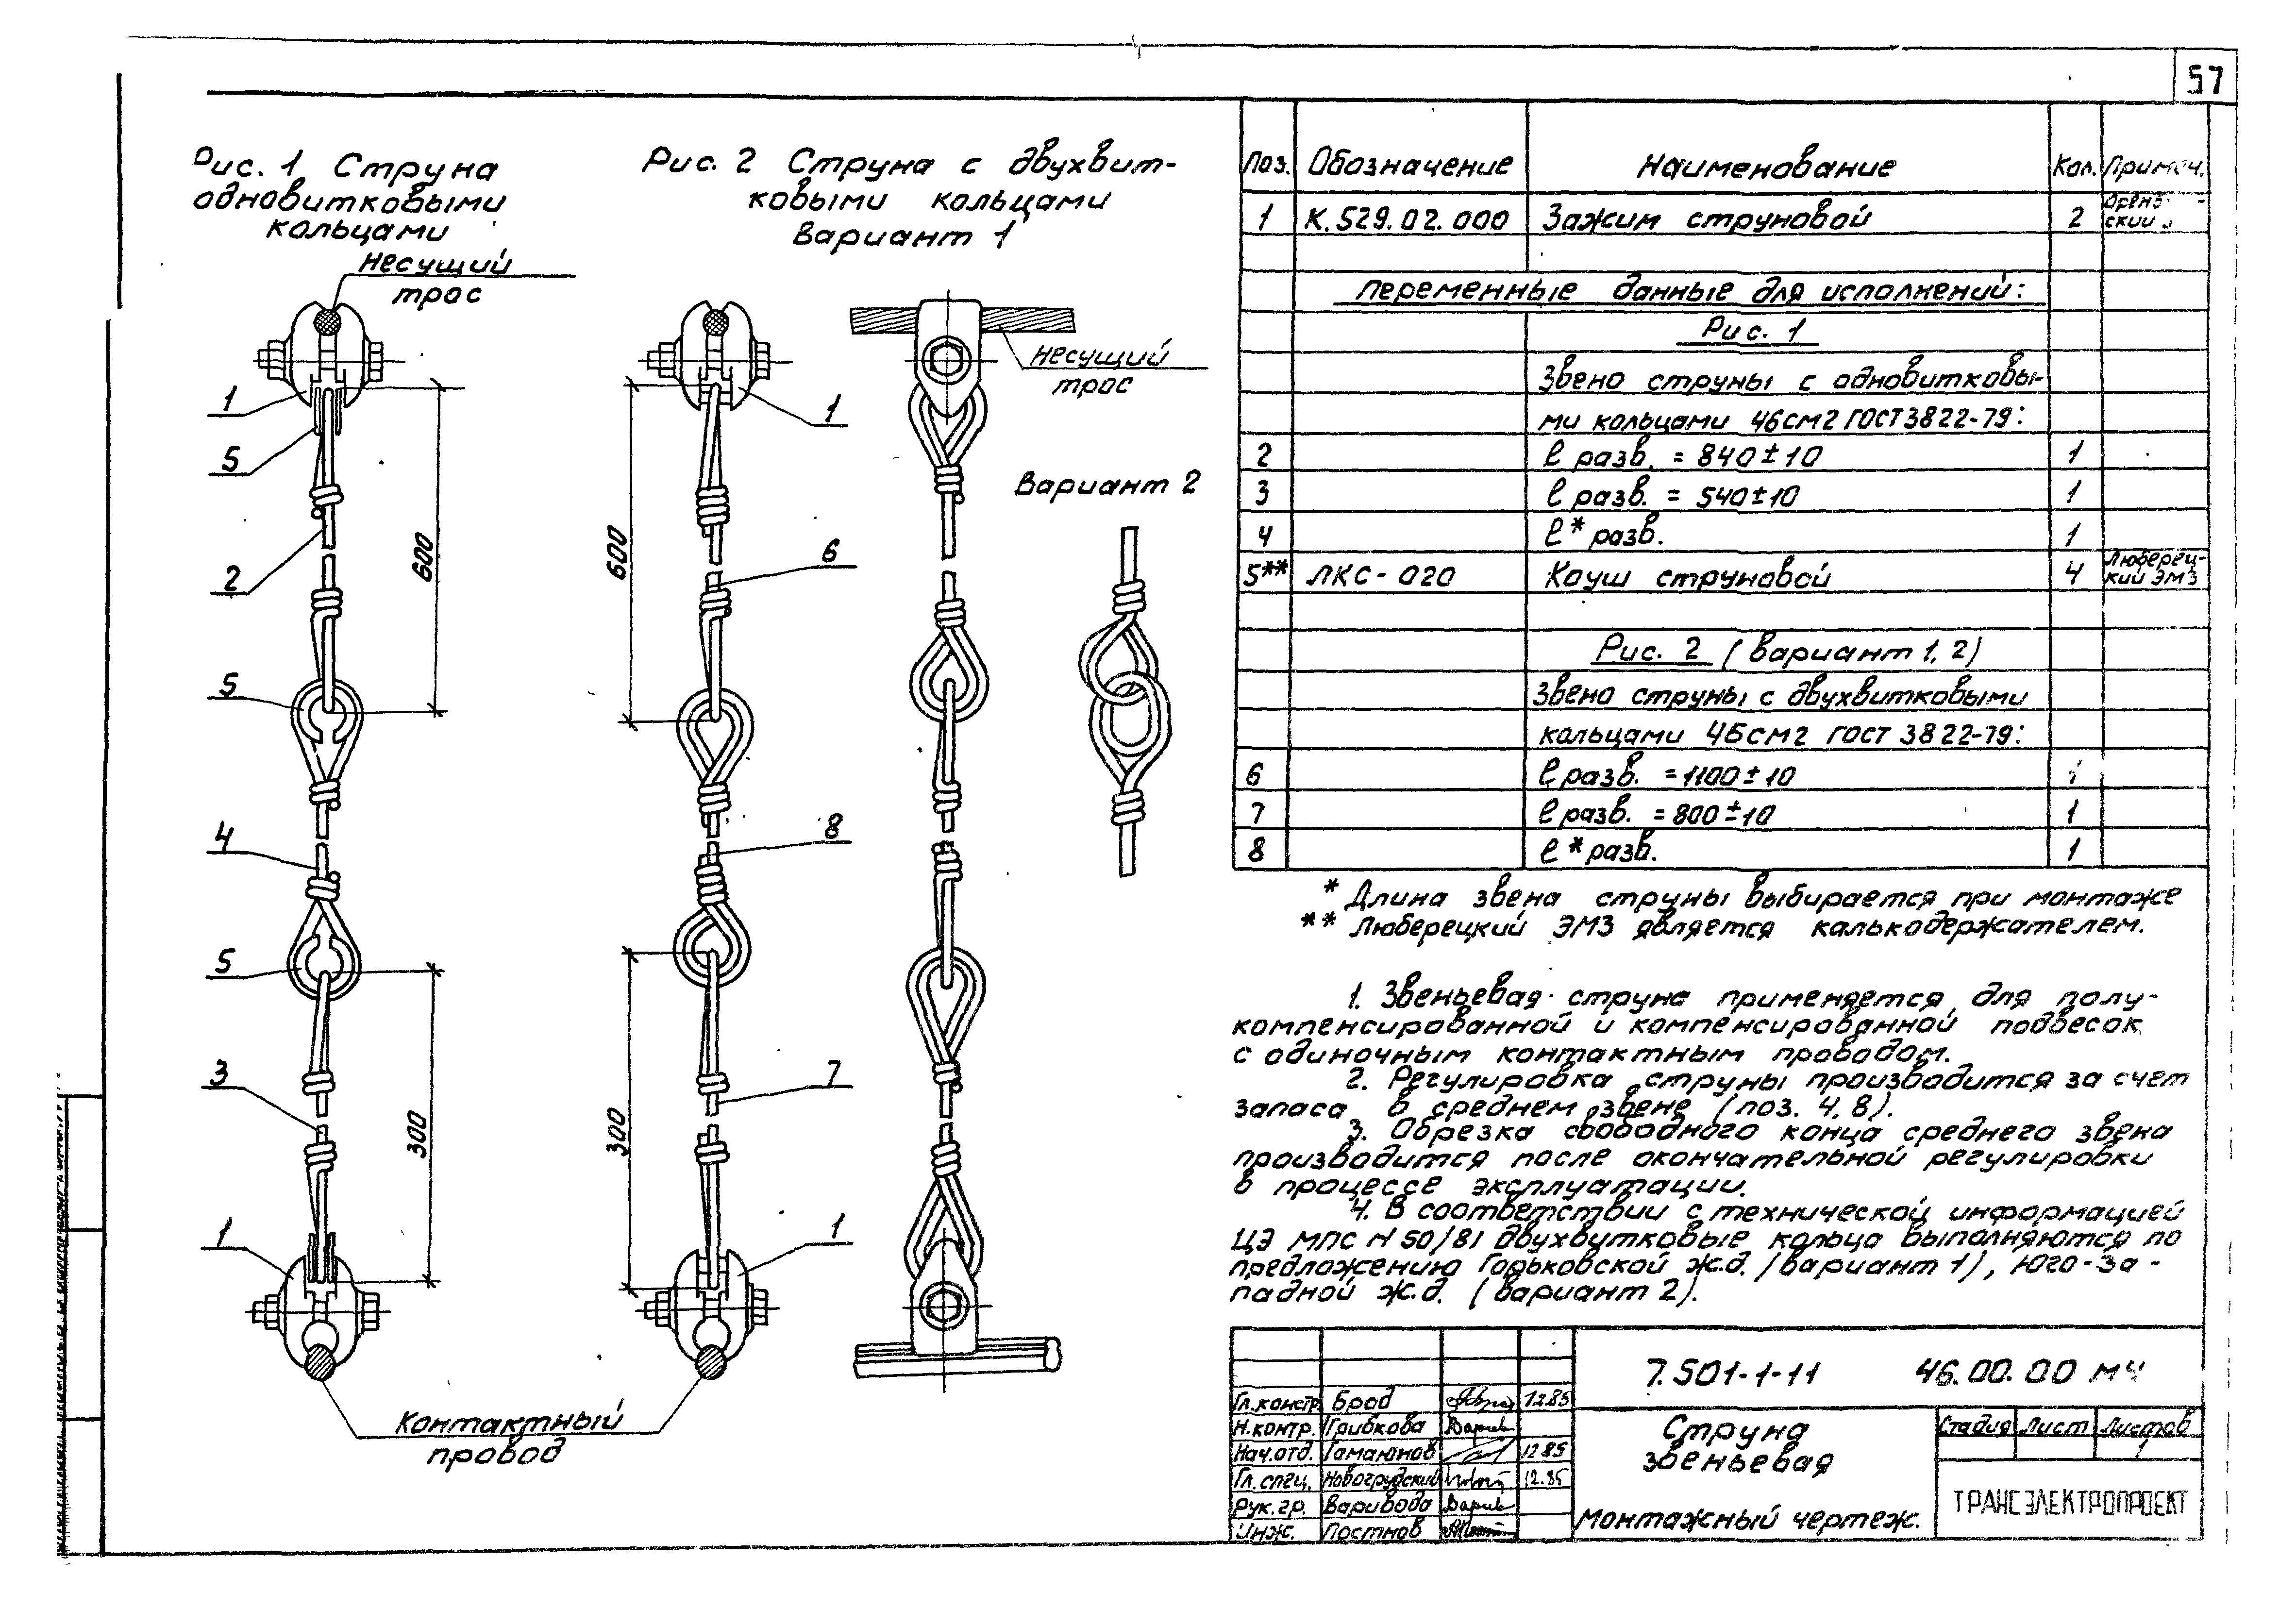 57
Рис. 1 Струна
одновитковыми
кольцами
Несущий
трос
Рис. 2 Струна с двухвит-
ковыми кольцами
Вариант 1
Несущий
трос
Вариант 2
1
5
2
5
4
5
3
1
600
300
1
6
8
7
1
600
300
Контактный
провод
Поз. Обозначение Наименование Кол. Примеч.
1 К.529.02.000 Зажим струновой 2
Переменные данные для исполнений:
Рис. 1
Звено струны с одновитковы-
ми кольцами 4БСМ2 ГОСТ3822-79:
2 ℓ разв. = 840±10 1
3 ℓ разв. = 540±10 1
4 ℓ* разв. 1
5** ЛКС-020 Коуш струновой 4 Люберец-
кий ЭМЗ
Рис. 2 (вариант 1, 2)
Звено струны с двухвитковыми
кольцами 4БСМ2 ГОСТ 3822-79:
6 ℓ разв. =1100±10
7 ℓ разв. =800±10 1
8 ℓ* разв. 1
* Длина звена струны выбирается при монтаже
** Люберецкий ЭМЗ является калькодержателем.
1. Звеньевая струна применяется для полу-
компенсированной и компенсированной подвесок
с одиночным контактным проводом.
2. Регулировка струны производится за счет
запаса в среднем звене (поз. 4, 8).
3. Обрезка свободного конца среднего звена
производится после окончательной регулировки
в процессе эксплуатации.
4. В соответствии с технической информацией
ЦЭ МПС N 50/81 двухвутковые кольца выполняются по
предложению Горьковской ж.д. (вариант 1), Юго-за-
падной ж.д. (вариант 2).
7.501-1-11 46.00.00 МЧ
Гл.констр. Брод 12.85
Н.контр. Грибкова
Нач.отд. Гамаюнов 12.85
Гл.спец. Новогрудский 12.85
Рук.гр. Варивода
Инж. Постнов
Струна
звеньевая
Монтажный чертеж.
Стадия Лист Листов
1
ТРАНСЭЛЕКТРОПРОЕКТ